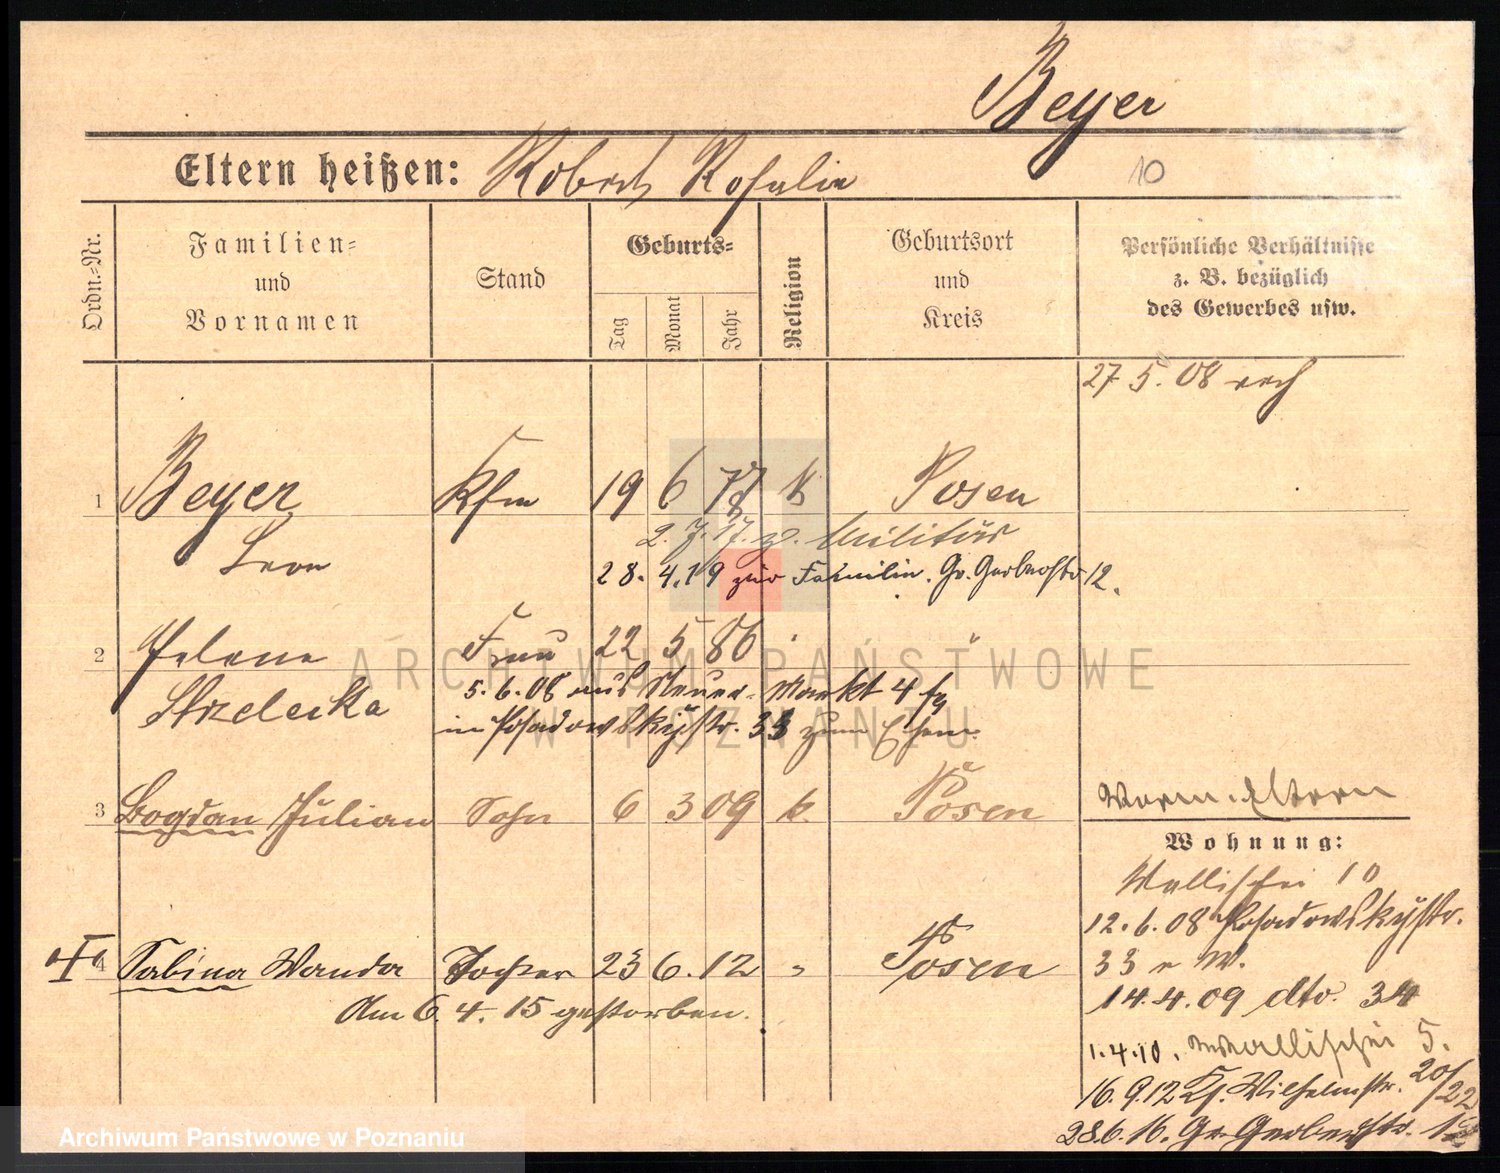 Beyer
Eltern heißen: Robert Rosalie 10
Ordn.-Nr.
Familien-
und
Vornamen
Stand
Geburts-
Tag
Monat
Jahr
Religion
Geburtsort
und
Kreis
Persönliche Verhältnisse
z. B. bezüglich
des Gewerbes usw.
27 5. 08
1 Beyer Kfm 19 6 k Posen
Leon
2. 7. 17. z. Militär
28. 4. 19 zur Familie. Gr. Gerberstr 12.
2 Helene Frau 22 5 86 " "
Strzelecka
5. 6. 08 aus Neuer-Markt 4
in Posadowskystr. 33 zum Ehem.
3 Bogdan Julian Sohn 6 3 09 k. Posen
Eltern
Wohnung:
Wallischei 10
12. 6. 08 Posadowskystr.
33
14. 4. 09 dto. 34
1. 4. 10. Wallischei 5.
16. 9. 12 Wilhelmstr. 20/22
28. 6. 16. Gr. Gerberstr. 12
4 Sabina Wanda Tochter 23 6. 12 " Posen
Am 6. 4. 15 gestorben.
ARCHIWUM PAŃSTWOWE
W POZNANIU
Archiwum Państwowe w Poznaniu